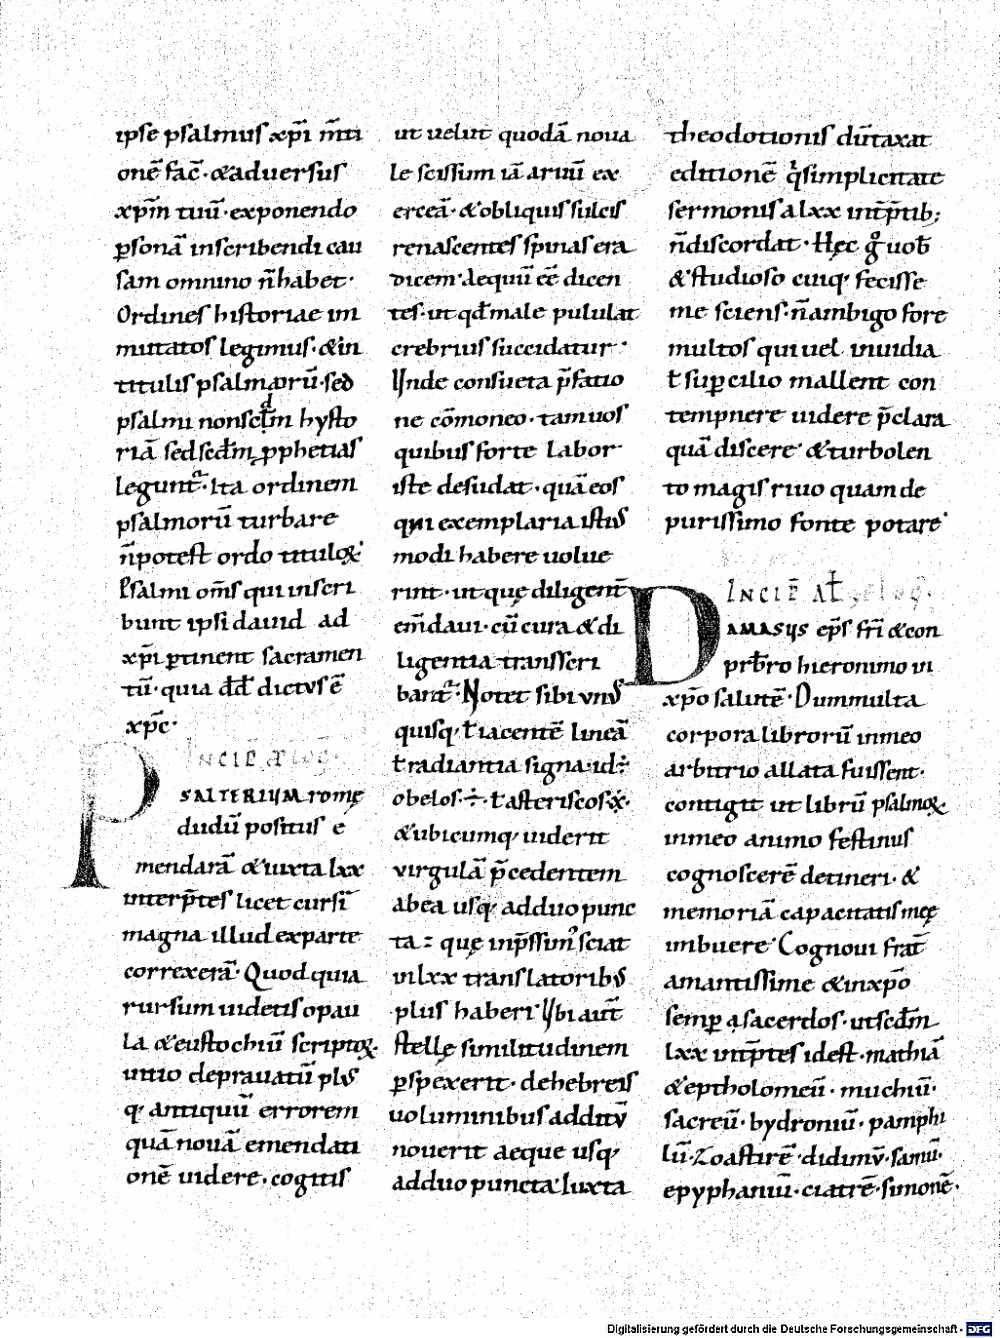 ipse psalmus xp̄i m̄ti
onē fac̄·&aduersus
xpm̄ tuū·exponendo
ꝑsonā inscribendi cau
sam omnino n̄habet·
Ordines historiae im
mutatos legimus·&in
titulis psalmorū·sed
psalmi non scd̄m hysto
riā sed scd̄m ꝓphetias
legunt᷑·Ita ordinem
psalmorū turbare
n̄potest ordo tituloꝝ·
Psalmi om̄s qui inscri
bunt ipsi dauid ad
xp̄i ꝑtinent sacramen
tū·quia dd̄ dictus ē
xp̄c·
INCIP̄
PSALTERIUM romę
dudū positus e
mendarā &iuxta lxx
interp̄tes licet cursī
magna illud exparte
correxerā·Quod quia
rursum uidetis opau
la &eustochiū scriptoꝝ
uitio deprauatū plus
q; antiquū errorem
quā nouā emendati
onē uidere·cogitis
ut uelut quodā noua
le scissum iā aruū ex
erceā·&obliquis sulcis
renascentes spinas era
dicem·aequū eē dicen
tes·ut qd̄ male pululat
crebrius succidatur·
Unde consueta p̄fatio
ne cōmoneo·tam uos
quibus forte labor
iste desudat·quā eos
qui exemplaria istius
modi habere uolue
rint·ut quę diligent̄
em̄daui·cū cura &di
ligentia transscri
bant᷑·Notet sibi unus
quisq; ƚ iacentē lineā
ƚ radiantia signa·id÷
obelos·÷·ƚ asteriscos·※·
&ubicumq; uiderit
virgulā p̄cedentem
abea usq; adduo punc
ta : quę inp̄ssim᾽ sciat
inlxx translatorib;
plus haberi·Ubi aut̄
stellę similitudinem
ꝑspexerit·dehebreis
uoluminibus additū
nouerit aeque usq;
adduo puncta·Iuxta
theodotionis dūtaxat
editionē qͥ simplicitate
sermonis a lxx int̄p̄tib;
n̄discordat·Hęc gͦ uob̄
&studioso cuiq; fecisse
me sciens·n̄ambigo fore
multos qui uel inuidia
ƚ suꝑcilio mallent con
tempnere uidere p̄clara
quā discere·&turbolen
to magis riuo quam de
purissimo fonte potare·
INCIP̄
DAMASUS ep̄s fr̄i &con
prb̄ro hieronimo in
xp̄o salutē·Dum multa
corpora librorū inmeo
arbitrio allata fuissent·
contigit ut librū psalmoꝝ
inmeo animo festinus
cognoscerē detineri·&
memoriā capacitatis męę
imbuere·Cognoui frat̄
amantissime &inxp̄o
semꝑ sacerdos·utscd̄m
lxx int̄p̄tes idest·mathiā
&eptholomeū·muchiū·
sacreū·bydroniū·pamphi
lū·Zoastirē·didimū·samū·
epyphaniū·ciatrē·simonē·
Digitalisierung gefördert durch die Deutsche Forschungsgemeinschaft - DFG